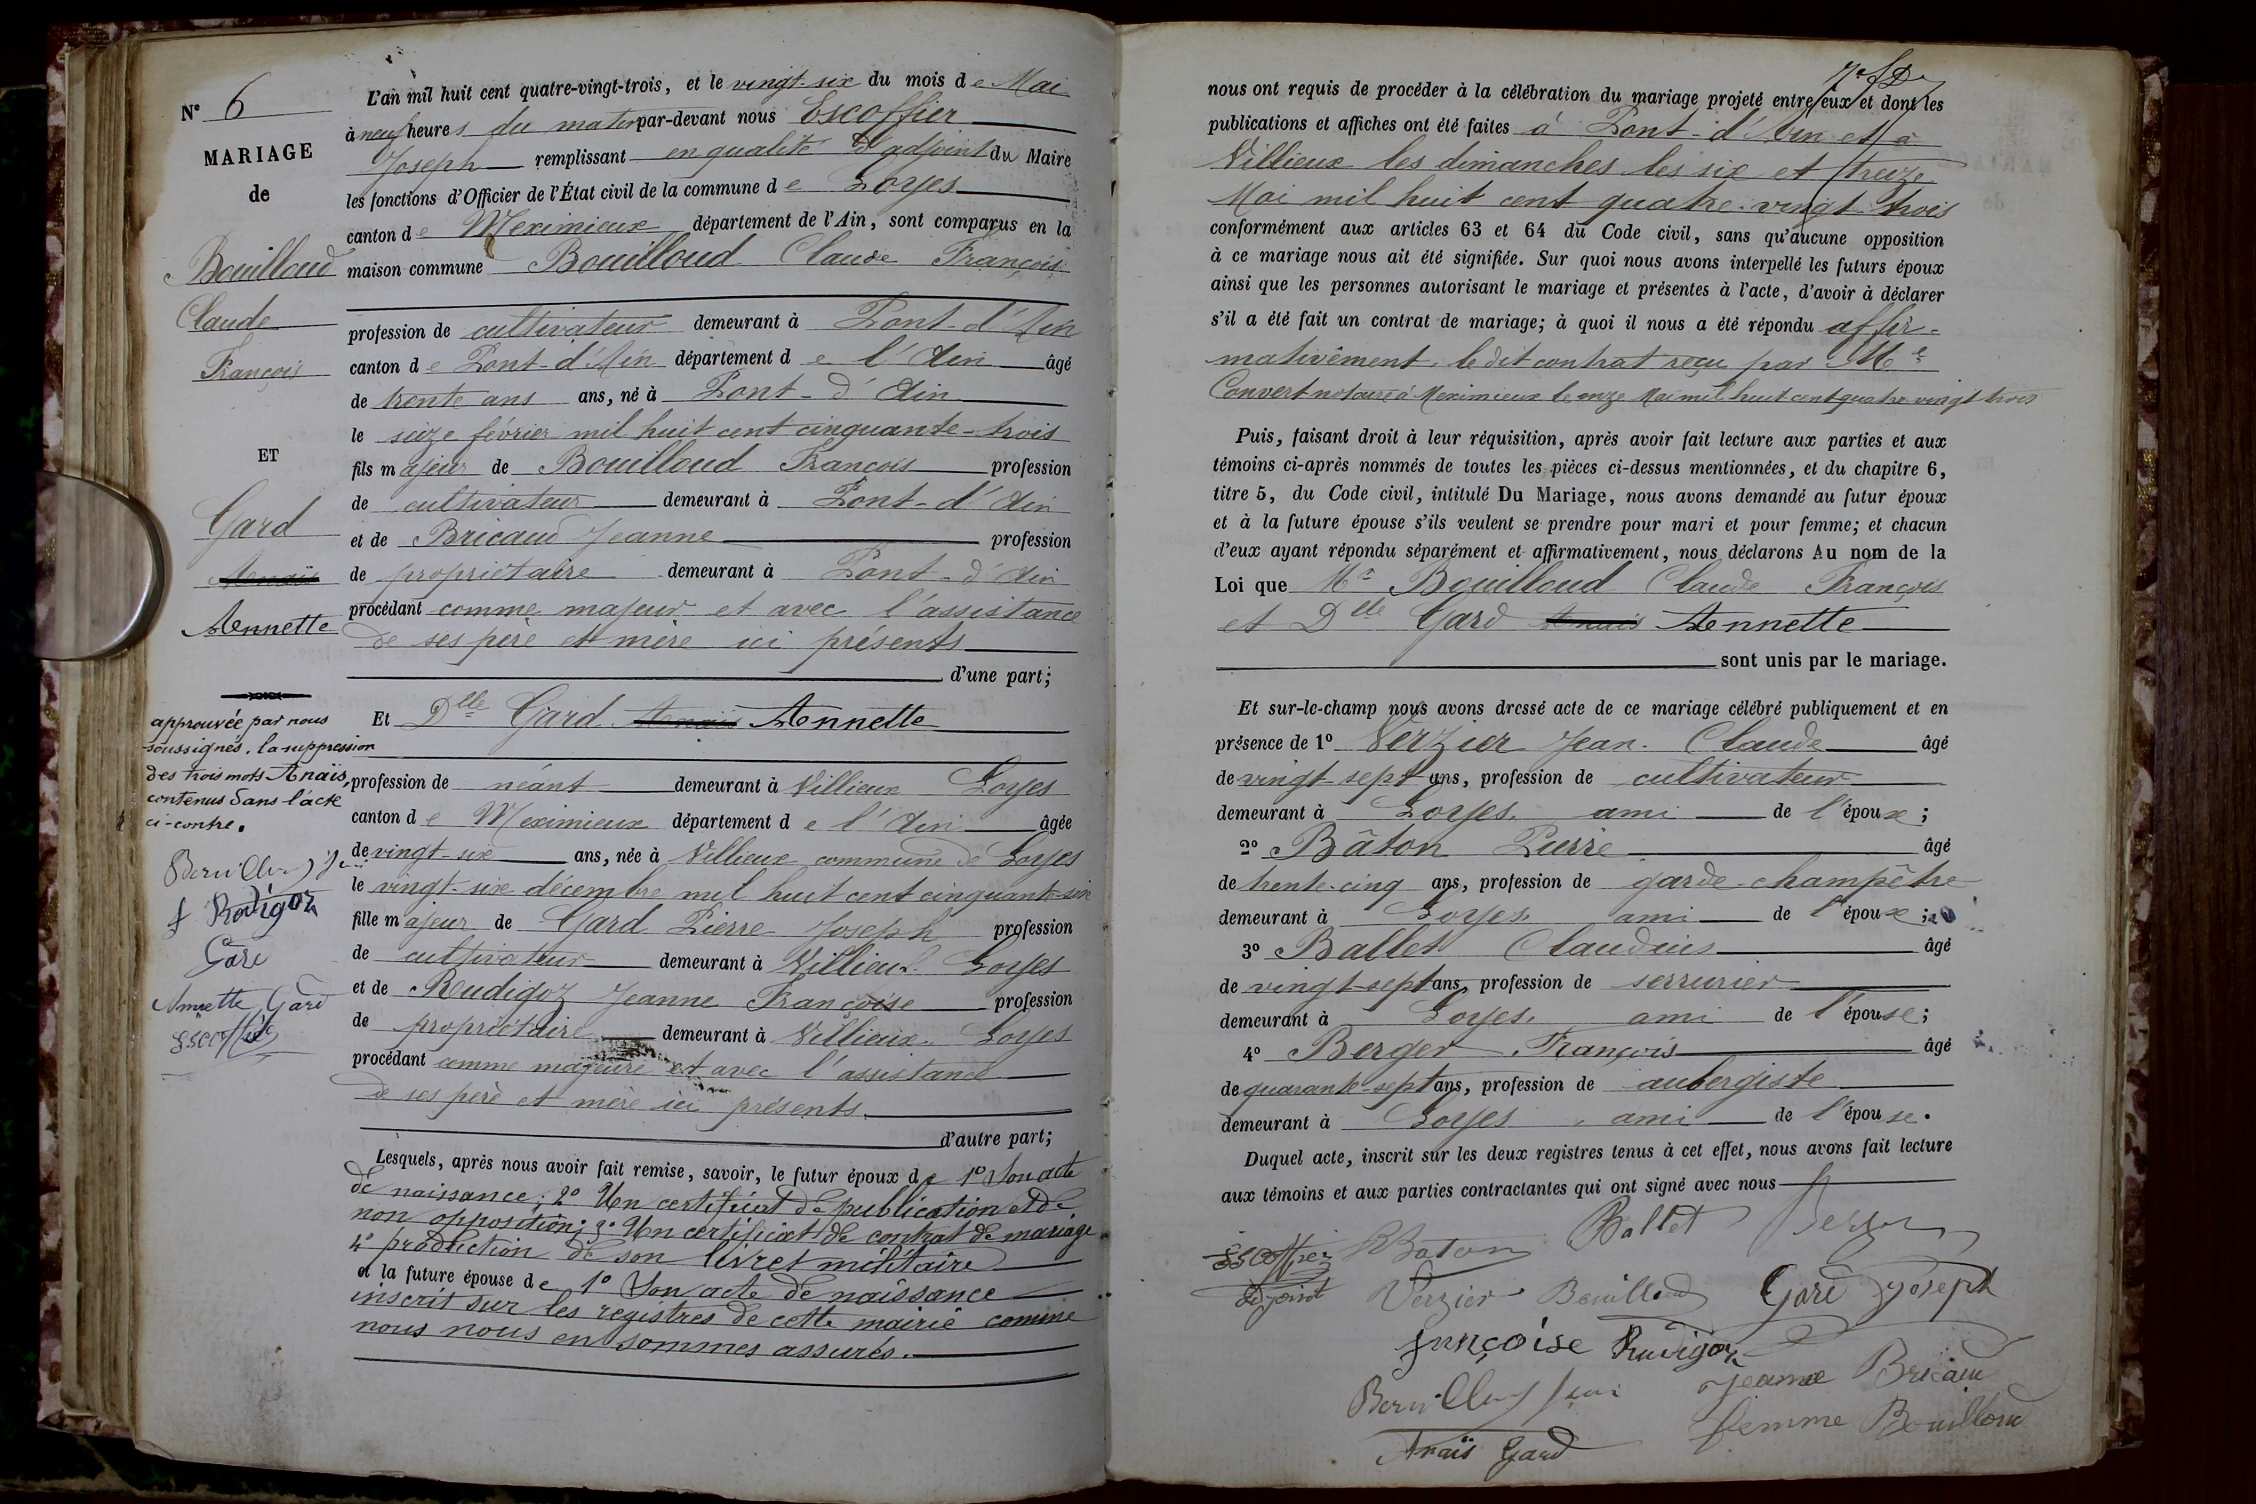 N° 6
MARIAGE
de
Bouilloud
Claude
François
ET
Gard
Anaïs
Annette
approuvée par nous
soussignés, la suppression
des trois mots Anaïs,
contenus dans l'acte
ci-contre.
f Rudigoz
Gard
Annette Gard
Escoffier
L'an mil huit cent quatre-vingt-trois, et le vingt-six du mois de Mai
à neuf heures du matin par-devant nous Escoffier
Joseph remplissant en qualité d'adjoint du Maire
les fonctions d'Officier de l'État civil de la commune de Loyes
canton de Meximieux département de l'Ain, sont comparus en la
maison commune Bouilloud Claude François
profession de cultivateur demeurant à Pont-d'Ain
canton de Pont-d'Ain département de l'Ain âgé
de trente ans ans, né à Pont-d'Ain
le seize février mil huit cent cinquante-trois
fils majeur de Bouilloud François profession
de cultivateur demeurant à Pont-d'Ain
et de Bricaud Jeanne profession
de propriétaire demeurant à Pont-d'Ain
procédant comme majeur et avec l'assistance
de ses père et mère ici présents
d'une part;
Et Dlle Gard Anaïs Annette
profession de néant demeurant à Villieux Loyes
canton de Meximieux département de l'Ain âgée
de vingt-six ans, née à Villieux commune de Loyes
le vingt-six décembre mil huit cent cinquante-six
fille majeur de Gard Pierre Joseph profession
de cultivateur demeurant à Villieux Loyes
et de Rudigoz Jeanne Françoise profession
de propriétaire demeurant à Villieux Loyes
procédant comme majeure et avec l'assistance
de ses père et mère ici présents.
d'autre part;
Lesquels, après nous avoir fait remise, savoir, le futur époux de 1° Son acte
de naissance; 2° Un certificat de publication et de
non opposition; 3° Un certificat de contrat de mariage
4° production de son livret militaire
et la future épouse de 1° Son acte de naissance
inscrit sur les registres de cette mairie comme
nous nous en sommes assurés.
nous ont requis de procéder à la célébration du mariage projeté entre eux et dont les
publications et affiches ont été faites à Pont-d'Ain et à
Villieux les dimanches les six et treize
Mai mil huit cent quatre-vingt-trois
conformément aux articles 63 et 64 du Code civil, sans qu'aucune opposition
à ce mariage nous ait été signifiée. Sur quoi nous avons interpellé les futurs époux
ainsi que les personnes autorisant le mariage et présentes à l'acte, d'avoir à déclarer
s'il a été fait un contrat de mariage; à quoi il nous a été répondu affir-
mativement, le dit contrat reçu par Me
Convert notaire à Meximieux le onze Mai mil huit cent quatre-vingt trois
Puis, faisant droit à leur réquisition, après avoir fait lecture aux parties et aux
témoins ci-après nommés de toutes les pièces ci-dessus mentionnées, et du chapitre 6,
titre 5, du Code civil, intitulé Du Mariage, nous avons demandé au futur époux
et à la future épouse s'ils veulent se prendre pour mari et pour femme; et chacun
d'eux ayant répondu séparément et affirmativement, nous déclarons Au nom de la
Loi que Mr Bouilloud Claude François
et Dlle Gard Anaïs Annette
sont unis par le mariage.
Et sur-le-champ nous avons dressé acte de ce mariage célébré publiquement et en
présence de 1° Verzier Jean-Claude âgé
de vingt-sept ans, profession de cultivateur
demeurant à Loyes, ami de l'époux;
2° Bâton Pierre âgé
de trente-cinq ans, profession de garde-champêtre
demeurant à Loyes, ami de l'époux;
3° Ballet Claudius âgé
de vingt-sept ans, profession de serrurier
demeurant à Loyes, ami de l'épouse;
4° Berger François âgé
de quarante-sept ans, profession de aubergiste
demeurant à Loyes, ami de l'épouse.
Duquel acte, inscrit sur les deux registres tenus à cet effet, nous avons fait lecture
aux témoins et aux parties contractantes qui ont signé avec nous
Escoffier Baton Ballet Berger
adjoint Verzier Bouilloud Gard Joseph
françoise Rudigoz
Jeanne Bricaud
femme Bouilloud
Anaïs Gard